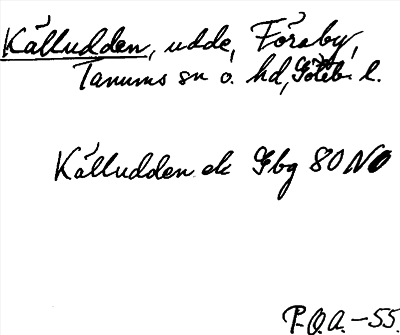 Källudden, udde, Föraby,
Tanums sn o. hd, Göteb. l.
Källudden ek Gbg 80 NO
P.Q.A. -55.